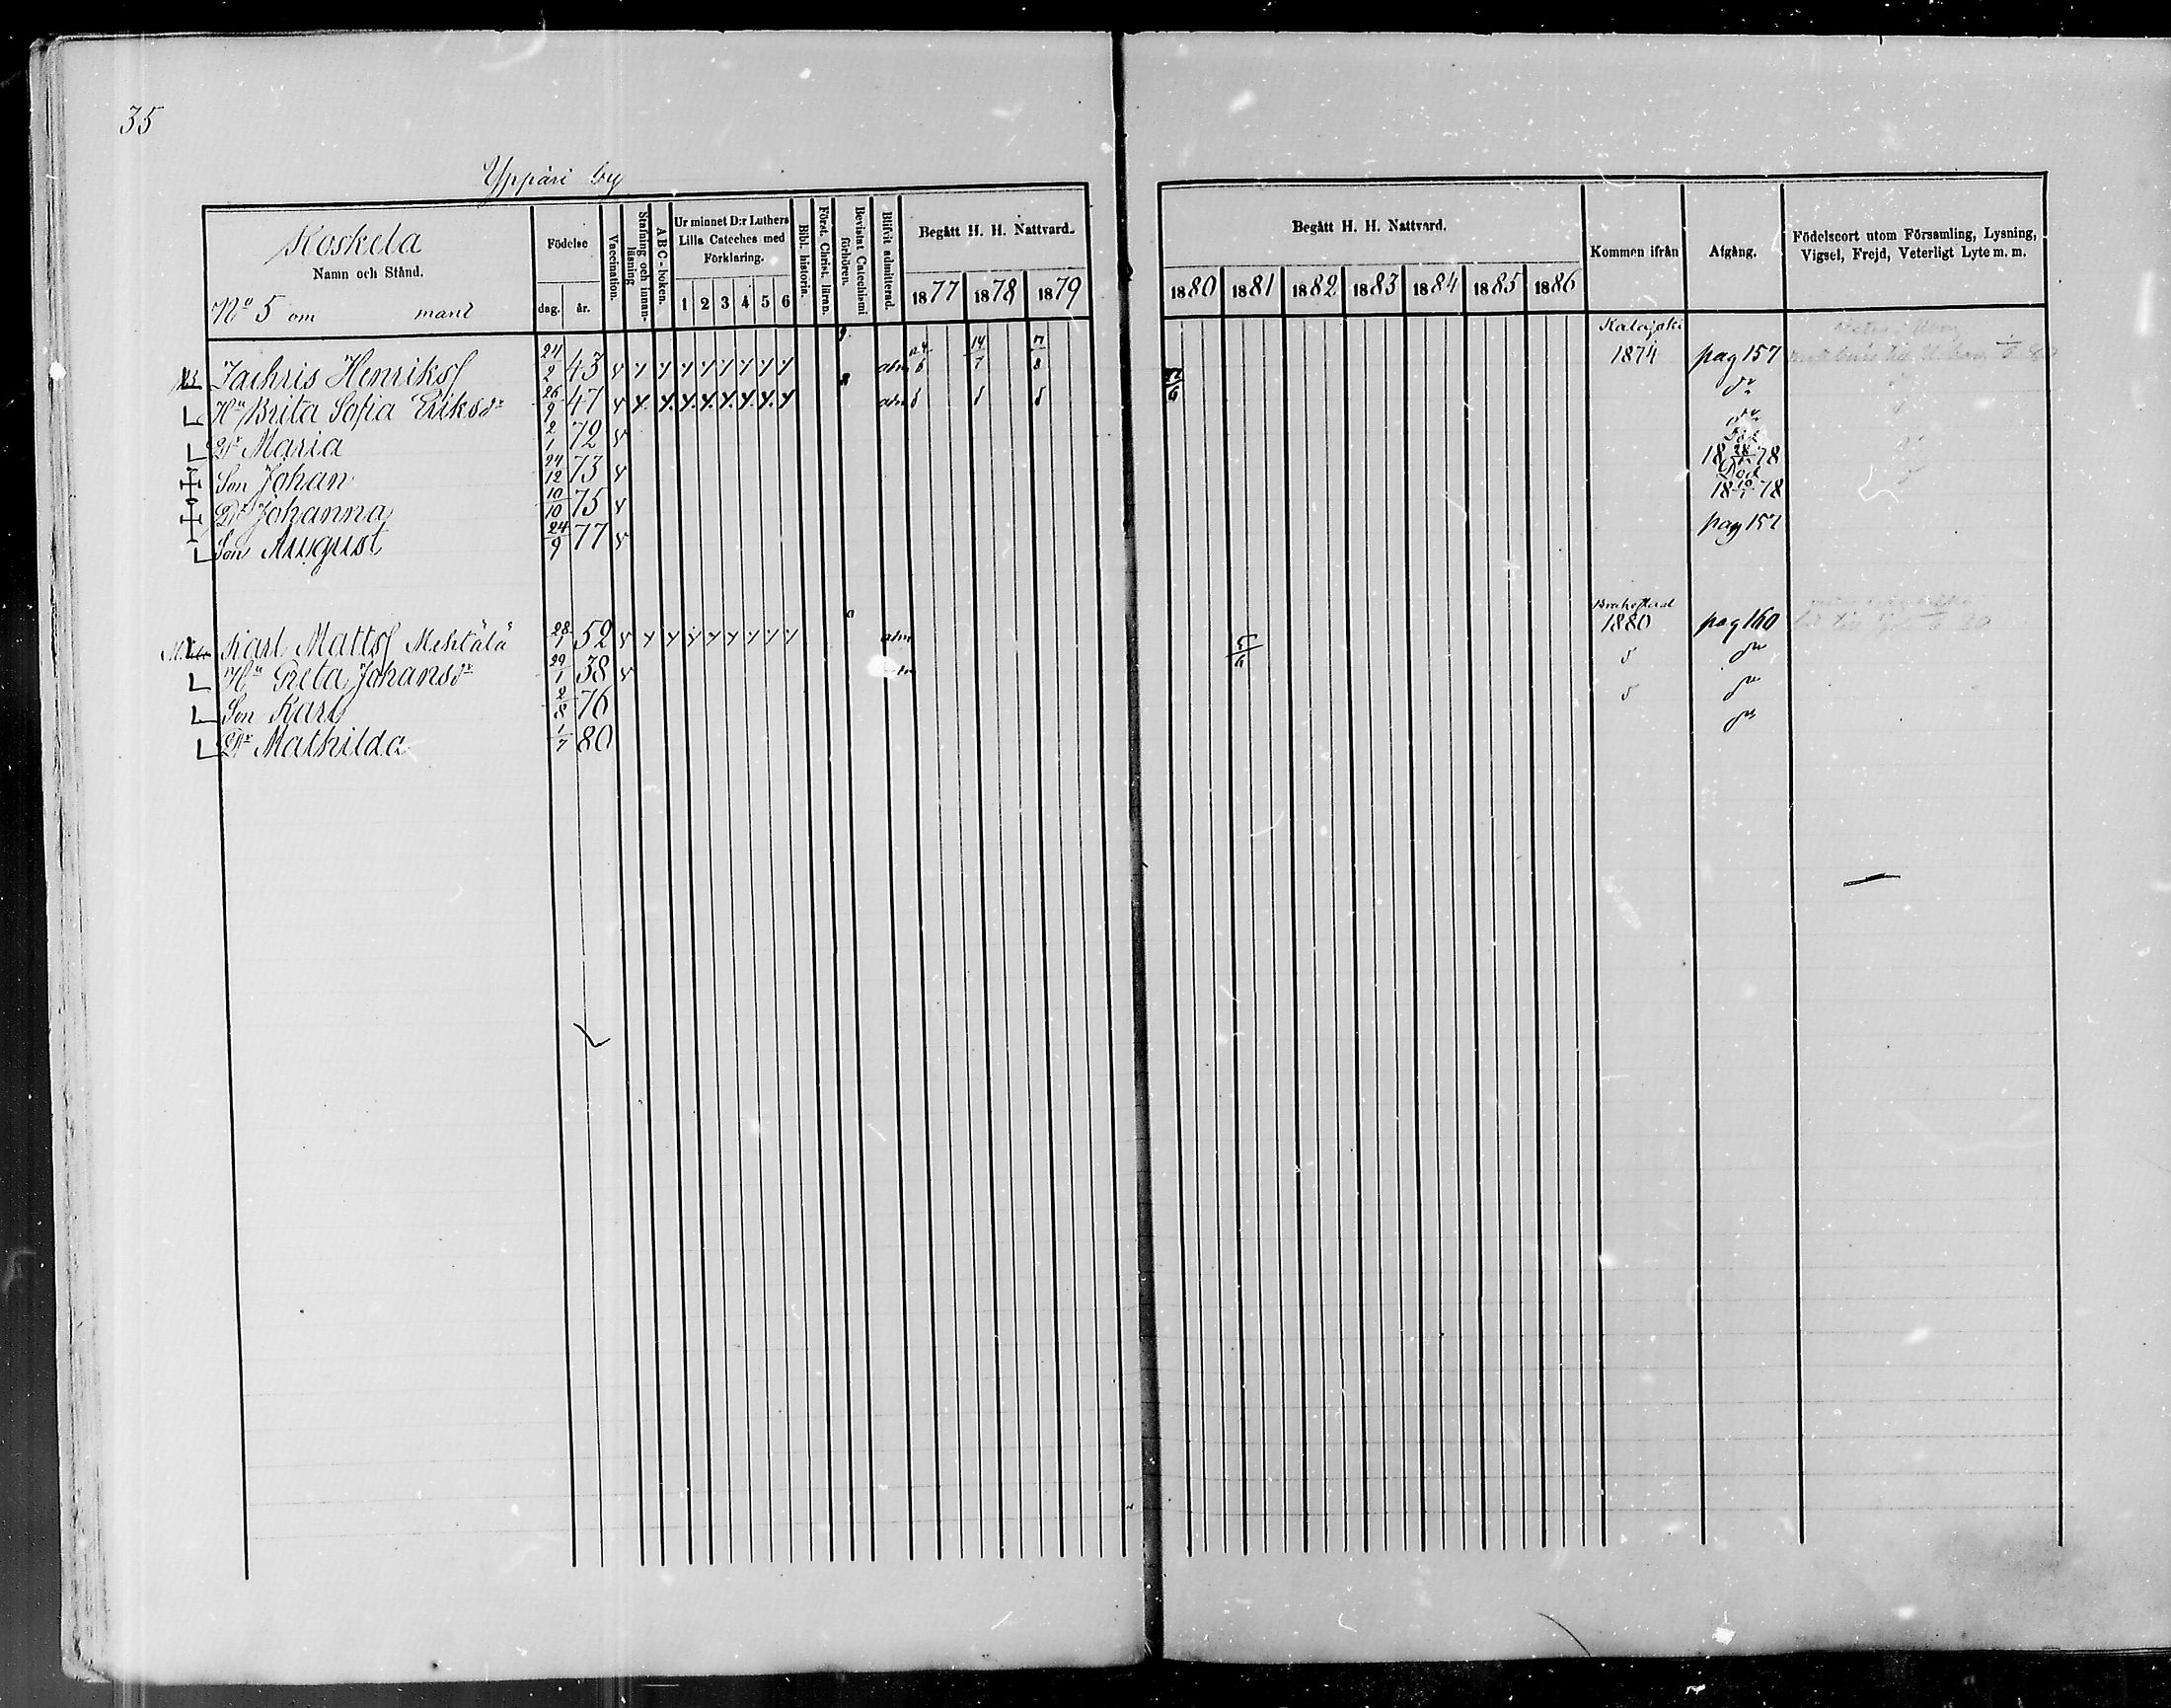 35
Yppäri by
Koskela
Namn och Stånd.
No 5 om mant
Födelse
dag. år.
Vaccination.
Stafning och innan-läsning
ABC-boken.
Ur minnet D:r Luthers Lilla Cateches med Förklaring.
1 2 3 4 5 6
Bibl. historia.
Först. Christ. läran.
Bevistat Catechismi förhören.
Blifvit admitterad.
Begått H. H. Nattvard.
1877 1878 1879
Begått H. H. Nattvard.
1880 1881 1882 1883 1884 1885 1886
Kommen ifrån
Afgång.
Födelseort utom Församling, Lysning, Vigsel, Frejd, Veterligt Lyte m. m.
Zachris Henriks 24/2 43 adm 24/6 14/7 17/8 Kalajoki 1874 pag 157
Hu Brita Sofia Eriksdr 26/9 47 adm
Dr Maria 2/1 72
Son Johan 24/12 73 Död 18 28/1 78
Dr Johanna 10/10 75 Död 18 10/1 78
Son August 24/9 77 pag 157
Karl Matts Mehtälä 28/1 52 adm 5/6 Brahestad 1880 pag 160
Hu Greta Johansdr 29/1 38
Son Karl 2/8 76
Dr Mathilda 1/7 80